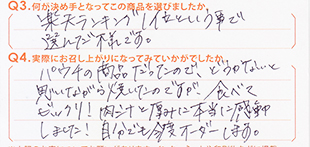 Q3.何が決め手となってこの商品を選びましたか。
楽天ランキング1位という事で
選んだ様です。
Q4.実際にお召し上がりになってみていかがでしたか。
パウチの商品だったので、どうかな?と
思いながら焼いたのですが、食べて
ビックリ!肉汁と厚みに本当に感動
しました!自分でも今度オーダーします。